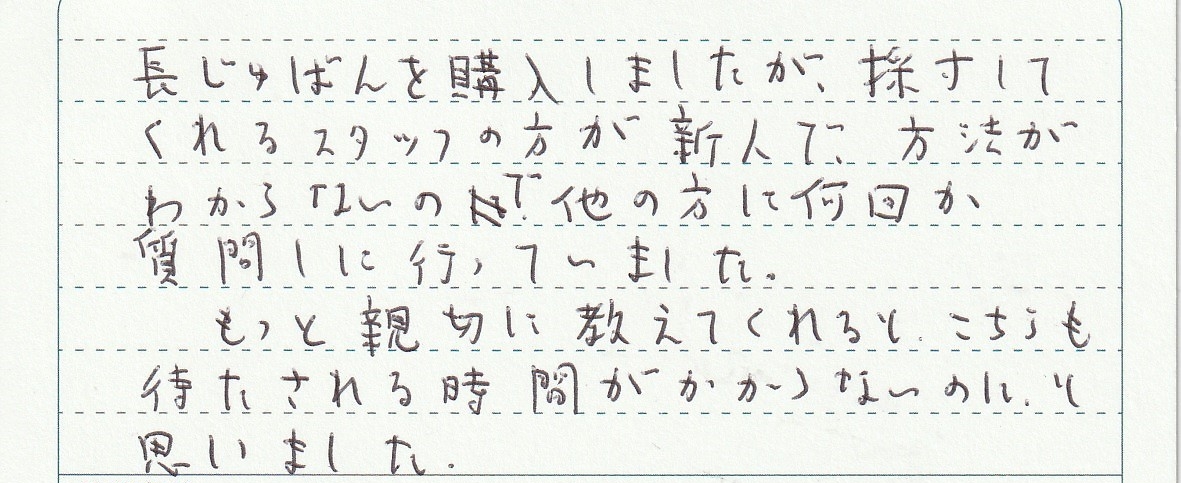 長じゅばんを購入しましたが、採寸して
くれるスタッフの方が新人で、方法が
わからないので他の方に何回か
質問しに行っていました。
もっと親切に教えてくれると、こちらも
待たされる時間がかからないのに、と
思いました。